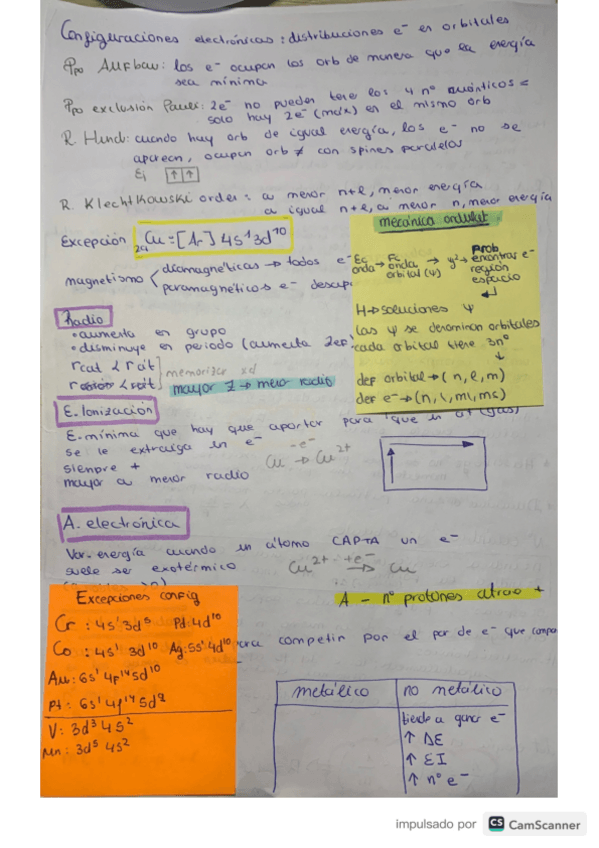 Configuraciones electrónicas: distribuciones e- en orbitales
Ppo Aufbau: los e- ocupan los orb de manera que la energía
sea mínima
Ppo exclusión Pauli: 2e- no pueden tere los 4 nº cuánticos =
solo hay 2e- (máx) en el mismo orb
R Hund: cuando hay orb de igual energía, los e- no se
aparean, ocupan orb ≠ con spines paralelos
Ej ↑ ↑
R. Klechtkowski orden: a menor n+l, menor energía
a igual n+l, a menor n, menor energía
Excepción 29Cu = [Ar] 4s1 3d10
magnetismo
diamagnéticas → todos e-
paramagnéticos e- desap
mecánica ondulat
Ec onda → Fc onda orbital (ψ) → ψ2 → Prob encontrar e- región espacio
H → soluciones ψ
las ψ se denominan orbitales
cada orbital tiene 3nº
def orbital → (n, l, m)
def e- → (n, l, ml, ms)
Radio
• aumenta en grupo
• disminuye en periodo (aumenta Zep
rcat < rát
ranión < rát
memorizar xd
mayor Z → menor radio
E. Ionización
E. mínima que hay que aportar para que un
se le extraiga un e-
siempre +
mayor a menor radio
Cu -e- → Cu2+
A. electrónica
Var. energía cuando un átomo CAPTA un e-
suele ser exotérmico
Cu2+ +e- → Cu
A - nº protones atrae +
para competir por el par de e- que compa
Excepciones config
Cr: 4s1 3d5 Pd: 4d10
Co: 4s1 3d10 Ag: 5s1 4d10
Au: 6s1 4f14 5d10
Pt: 6s1 4f14 5d9
V: 3d3 4s2
Mn: 3d5 4s2
metálico no metálico
tiende a ganar e-
↑ ΔE
↑ EI
↑ nº e-
impulsado por CS CamScanner